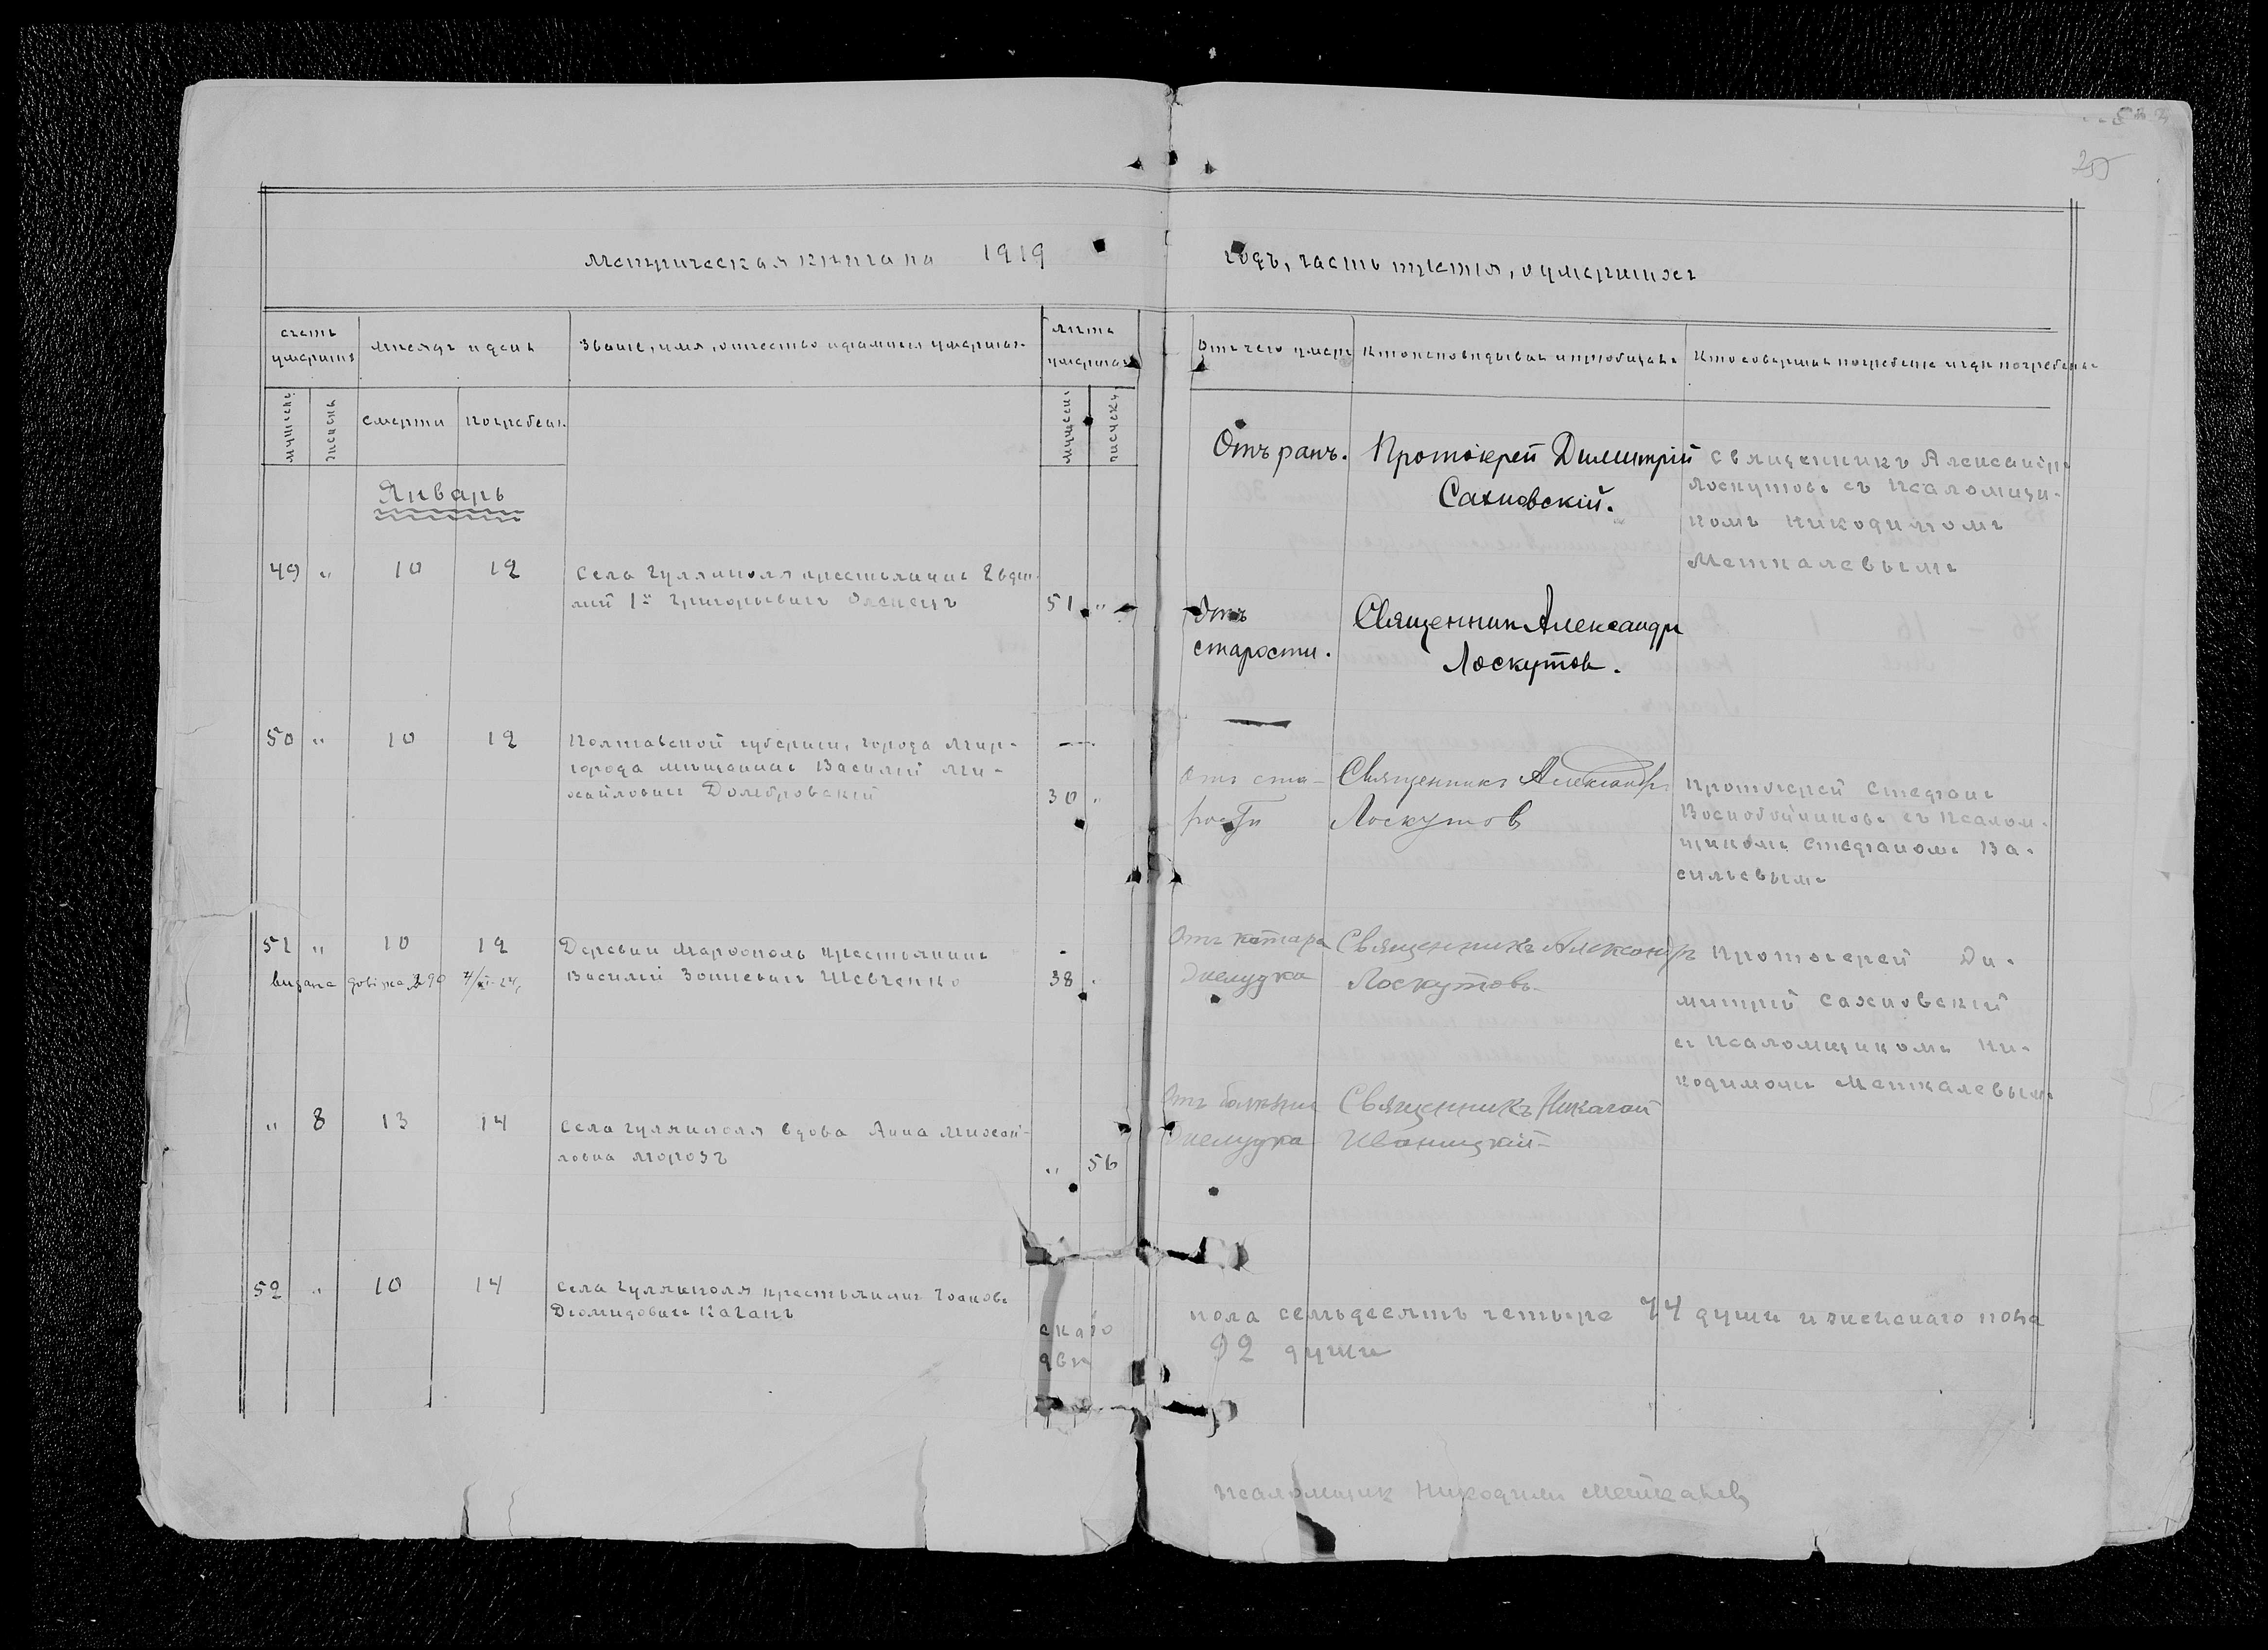 255
Метрическая книга на 1919
годъ, часть третья, о умершихъ
счетъ умерших
мѣсяцъ и день
Званіе, имя, отчество и фамилія умерших
лѣта умерших
Отъ чего умеръ
Кто исповѣдывал и пріобщал
Кто совершал погребеніе и гдѣ погребены
мужеск
женск
смерти
погребен.
мужеск
женск
Январь
49 " 10 12
Села Гуляйполя крестьянинъ Евфи-
мій 1й Григорьевичъ Олѣнецъ
51 "
Отъ ранъ.
Протоіерей Димитрій
Сахновскій.
Священникъ Александръ
Лоскутовъ съ псаломщи-
комъ Никодимомъ
Меткалевымъ
50 " 10 12
Полтавской губерніи, города Мир-
города мѣщанинъ Василій Ми-
хайловичъ Домбровскій
30 "
Отъ
старости.
Священникъ Александръ
Лоскутов.
51 " 10 12
Деревни Марфополь крестьянинъ
Василій Зотіевичъ Шевченко
38 "
видана довідка № 290
Отъ ста-
рости
Священникъ Александръ
Лоскутов
Протоіерей Стефанъ
Воскобойниковъ съ псалом-
щикомъ Стефаномъ Ва-
сильевымъ
" 8 13 14
Села Гуляйполя вдова Анна Михай-
ловна Морозъ
" 56
Отъ катара
желудка
Священникъ Александръ
Лоскутовъ
Протоіерей Ди-
митрій Сахновскій
съ псаломщикомъ Ни-
кодимомъ Меткалевымъ
52 " 10 14
Села Гуляйполя крестьянинъ Іоаннъ
Діомидовичъ Каганъ
Отъ болѣзни
желудка
Священникъ Николай
Иваницкій
скаго
пола семьдесятъ четыре 74 души и женскаго пола
двѣ
92 души
псаломщик Никодимъ Меткалев